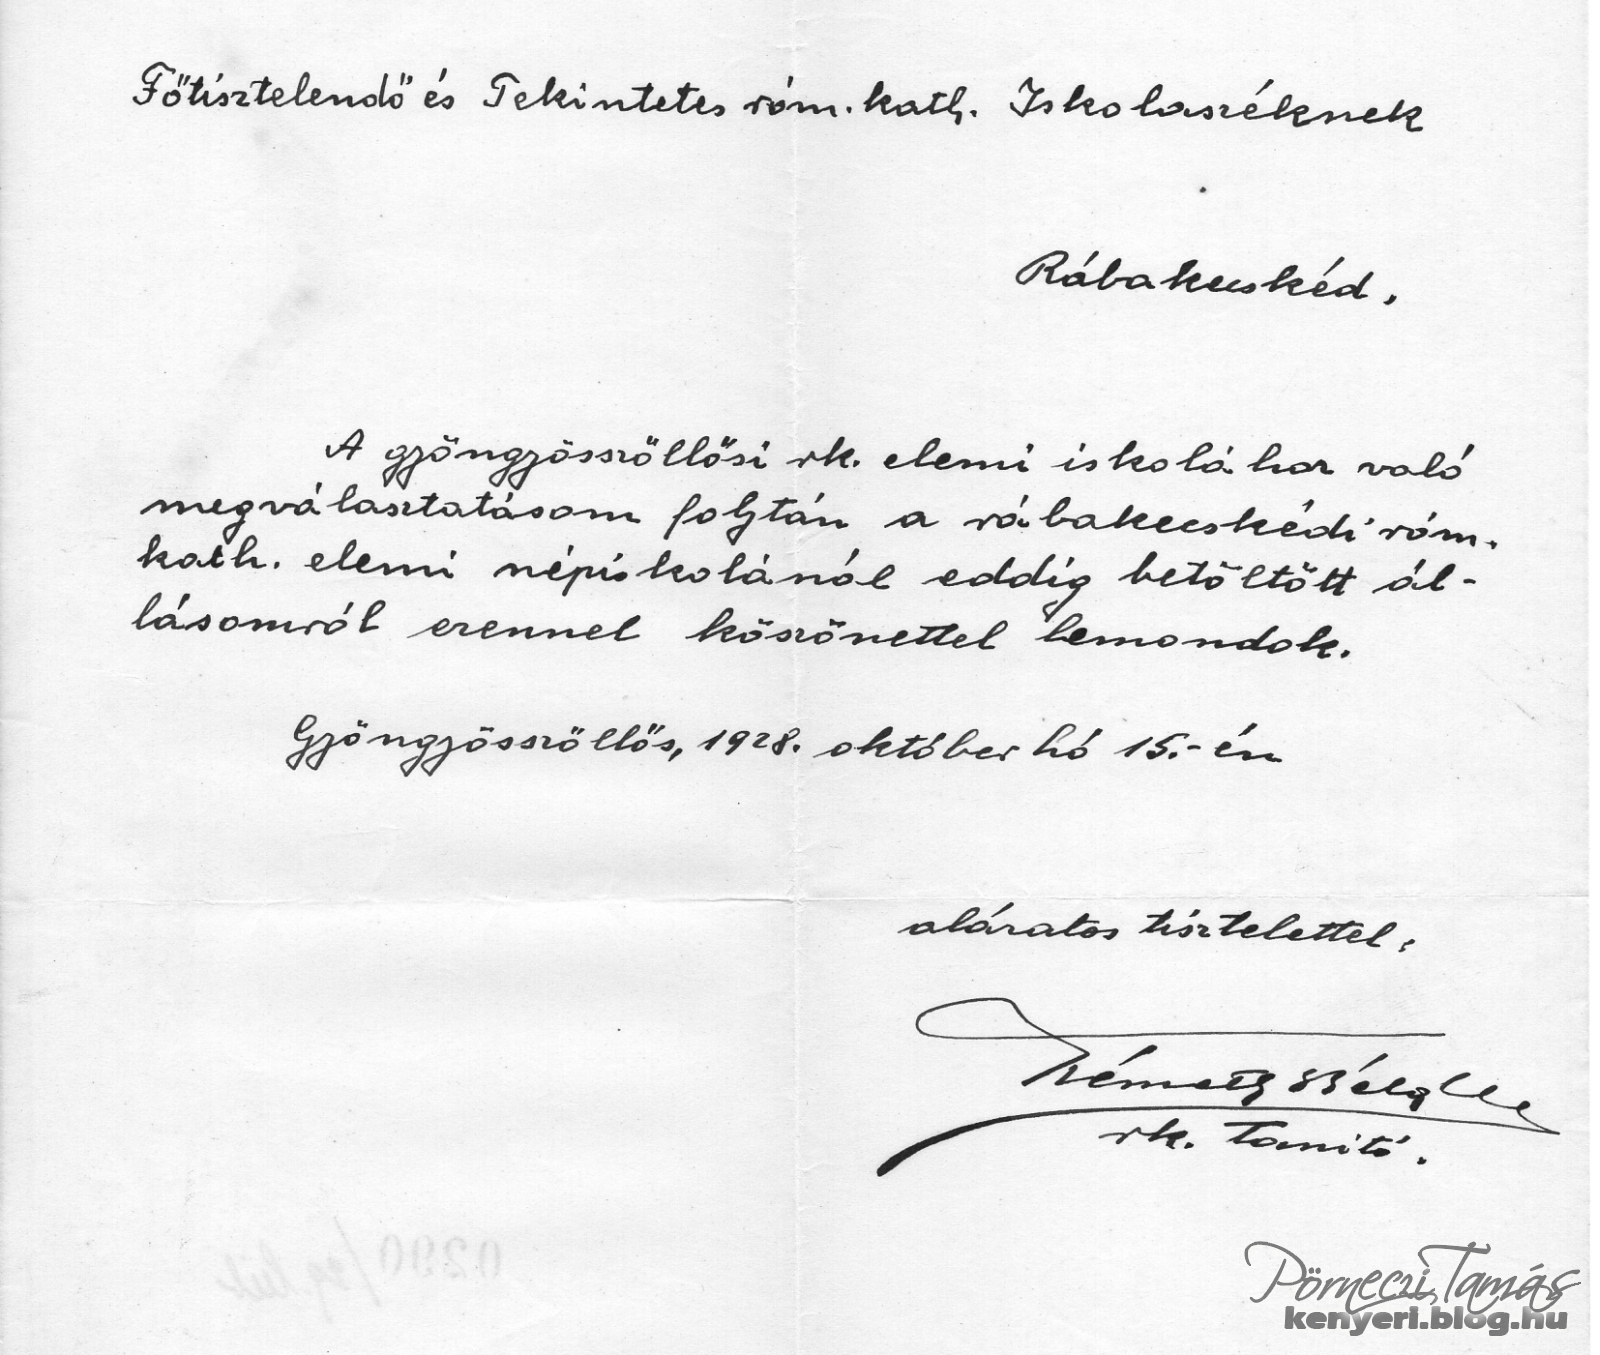 Főtisztelendő és Tekintetes róm. kath. Iskolaszéknek
Rábakecskéd.
A gyöngyösszöllősi rk. elemi iskolához való
megválasztatásom folytán a rábakecskédi róm.
kath. elemi népiskolánál eddig betöltött ál-
lásomról ezennel köszönettel lemondok.
Gyöngyösszöllős, 1928. október hó 15.-én
alázatos tisztelettel:
Németh Béla
rk. tanitó.
Pörneczi Tamás
kenyeri.blog.hu